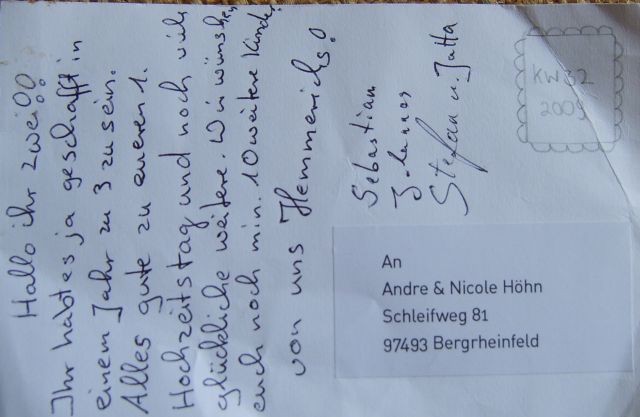 Hallo ihr zwei!!
Ihr habt es ja geschafft in
einem Jahr zu 3 zu sein.
Alles gute zu eueren 1.
Hochzeitstag und noch viele
glückliche weitere. Wir wünschen
euch noch min. 10 weitere Kinder
von uns Hemmerichs!
Sebastian
Johannes
Stefan u. Jutta
KW 32
2009
An
Andre & Nicole Höhn
Schleifweg 81
97493 Bergrheinfeld